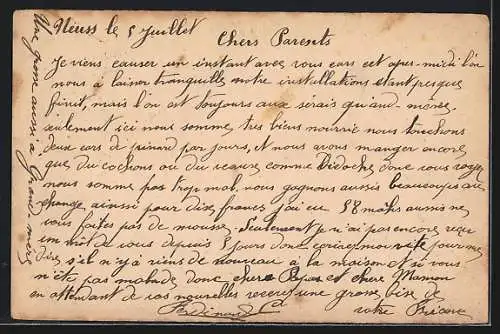 Neuss le 5 Juillet
Chers Parents
Je viens causer un instant avec vous cars cet apres-midi l'on
nous à laisser tranquilles notre installations etant presque
finit, mais l'on est toujours aux serais quand-même,
seulement ici nous somme tres biens nourrie nous touchons
deux cars de pinard par jours, et nous avons manger encore
que du cochons ou du veaux comme donc vous voyez
nous somme pas trop mal, nous gagnons aussis beaucoups au
change ainssi pour dix francs j'ai eu 58 marks aumis ne
vous faites pas de mousse. Seulement je n'ai pas encore reçu
un mot de vous depuis 5 jours donc ecrirez moi vite pour me
dire s'il n'y à riens de nouveau à la maison et si vous
n'ête pas malade donc chers Papas et chere Maman
en attendant de vos nouvelles recever une grosse bise de
votre
Ferdinand
Une grosse aussi à Grand mere